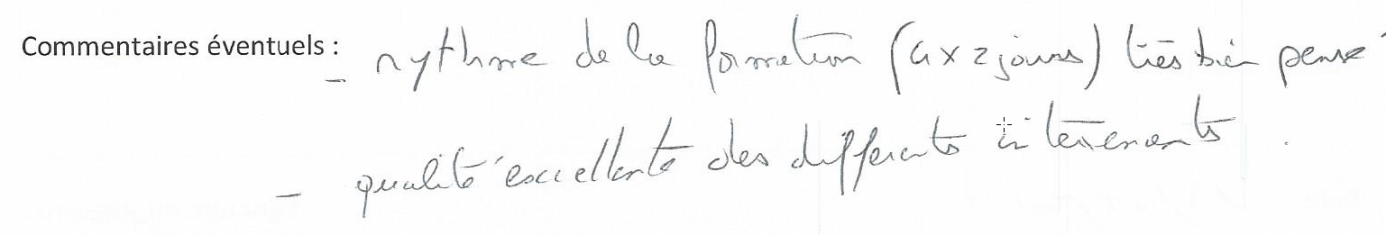 Commentaires éventuels :
- rythme de la formation (4 x 2 jours) très bien pensé
- qualité excellente des différents intervenants.